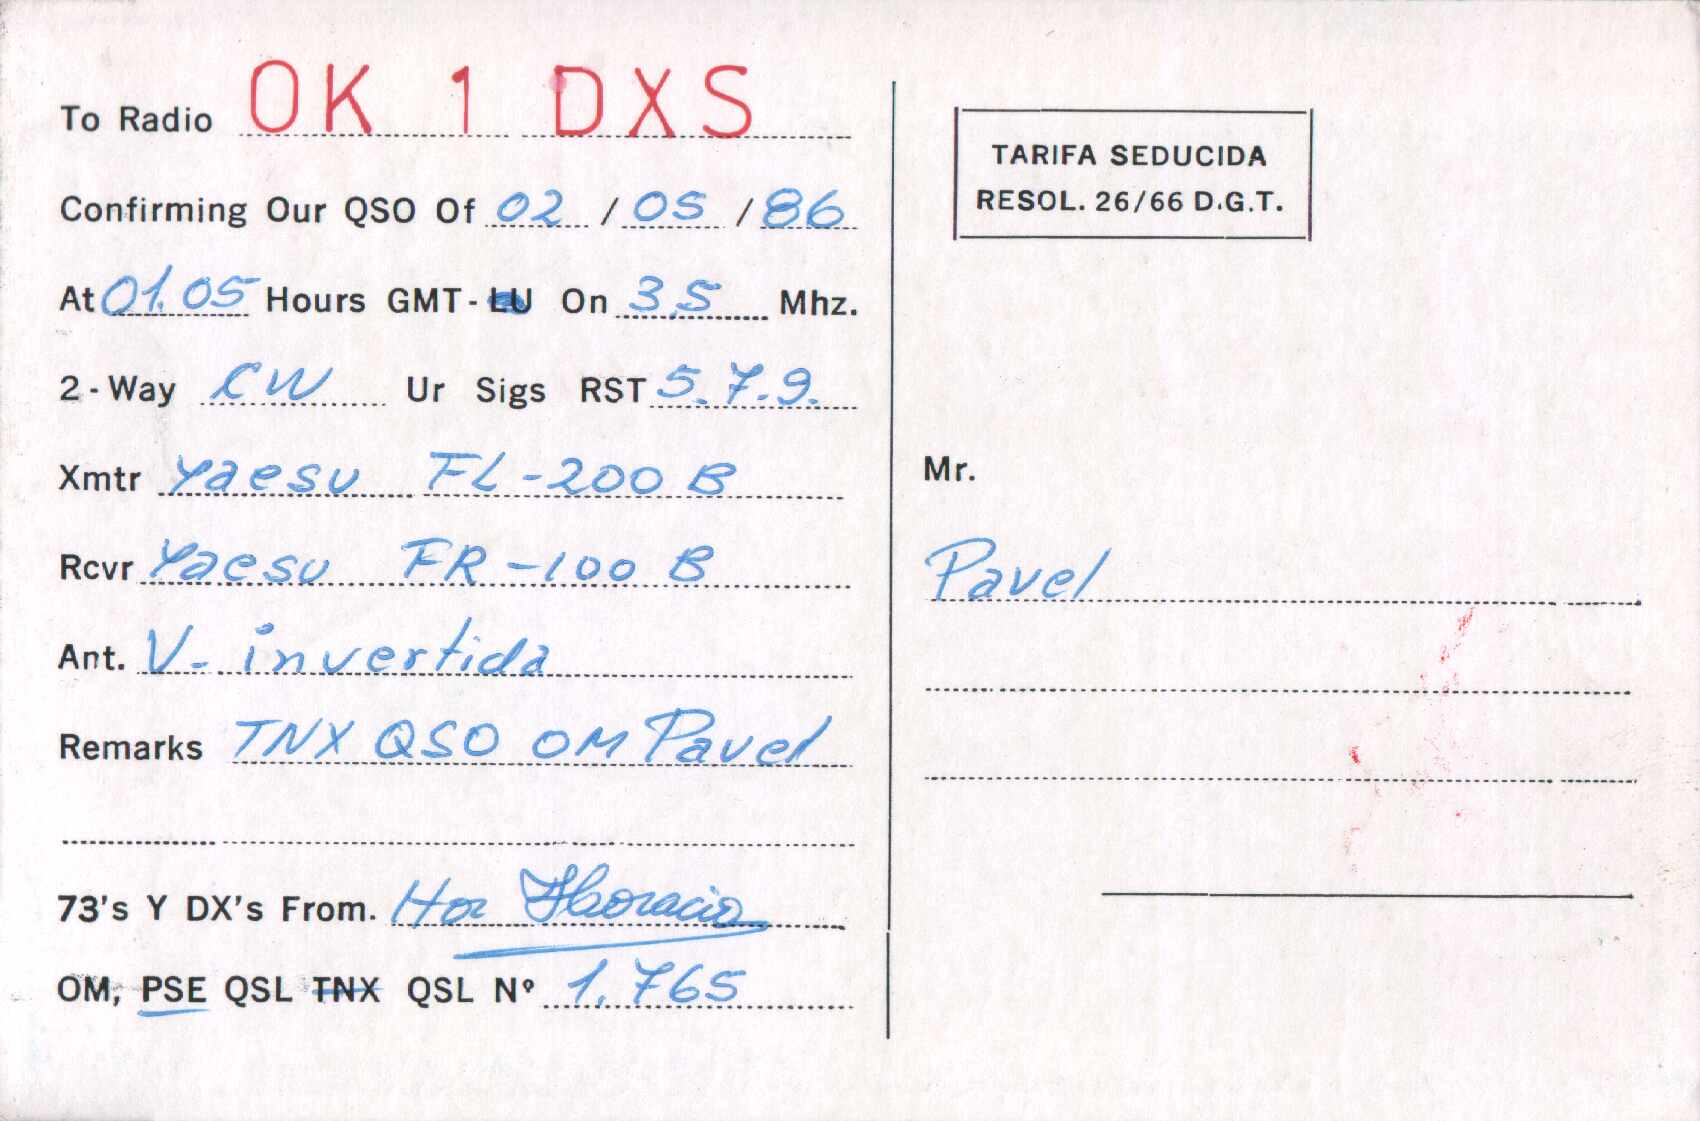 To Radio OK 1 DXS
Confirming Our QSO Of 02 / 05 / 86
At 01.05 Hours GMT-LU On 3,5 Mhz.
2-Way CW Ur Sigs RST 5.7.9.
Xmtr Yaesu FL-200 B
Rcvr Yaesu FR-100 B
Ant. V- invertida
Remarks TNX QSO OM Pavel
73's Y DX's From. Hor Horacio
OM, PSE QSL TNX QSL Nº 1.765
TARIFA SEDUCIDA
RESOL. 26/66 D.G.T.
Mr.
Pavel